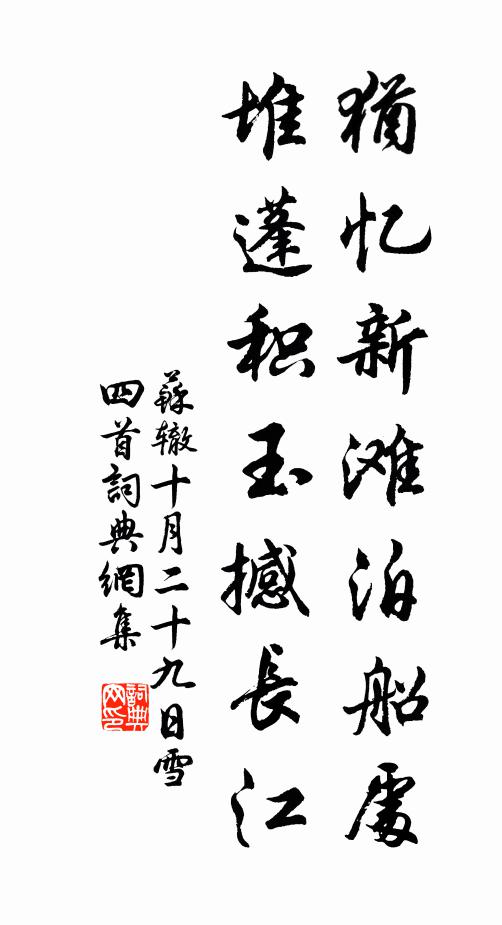 猶忆新滩泊船處
堆蓬积玉撼長江
蘇辙十月二十九日雪
四首詞典網集
詞典
网印